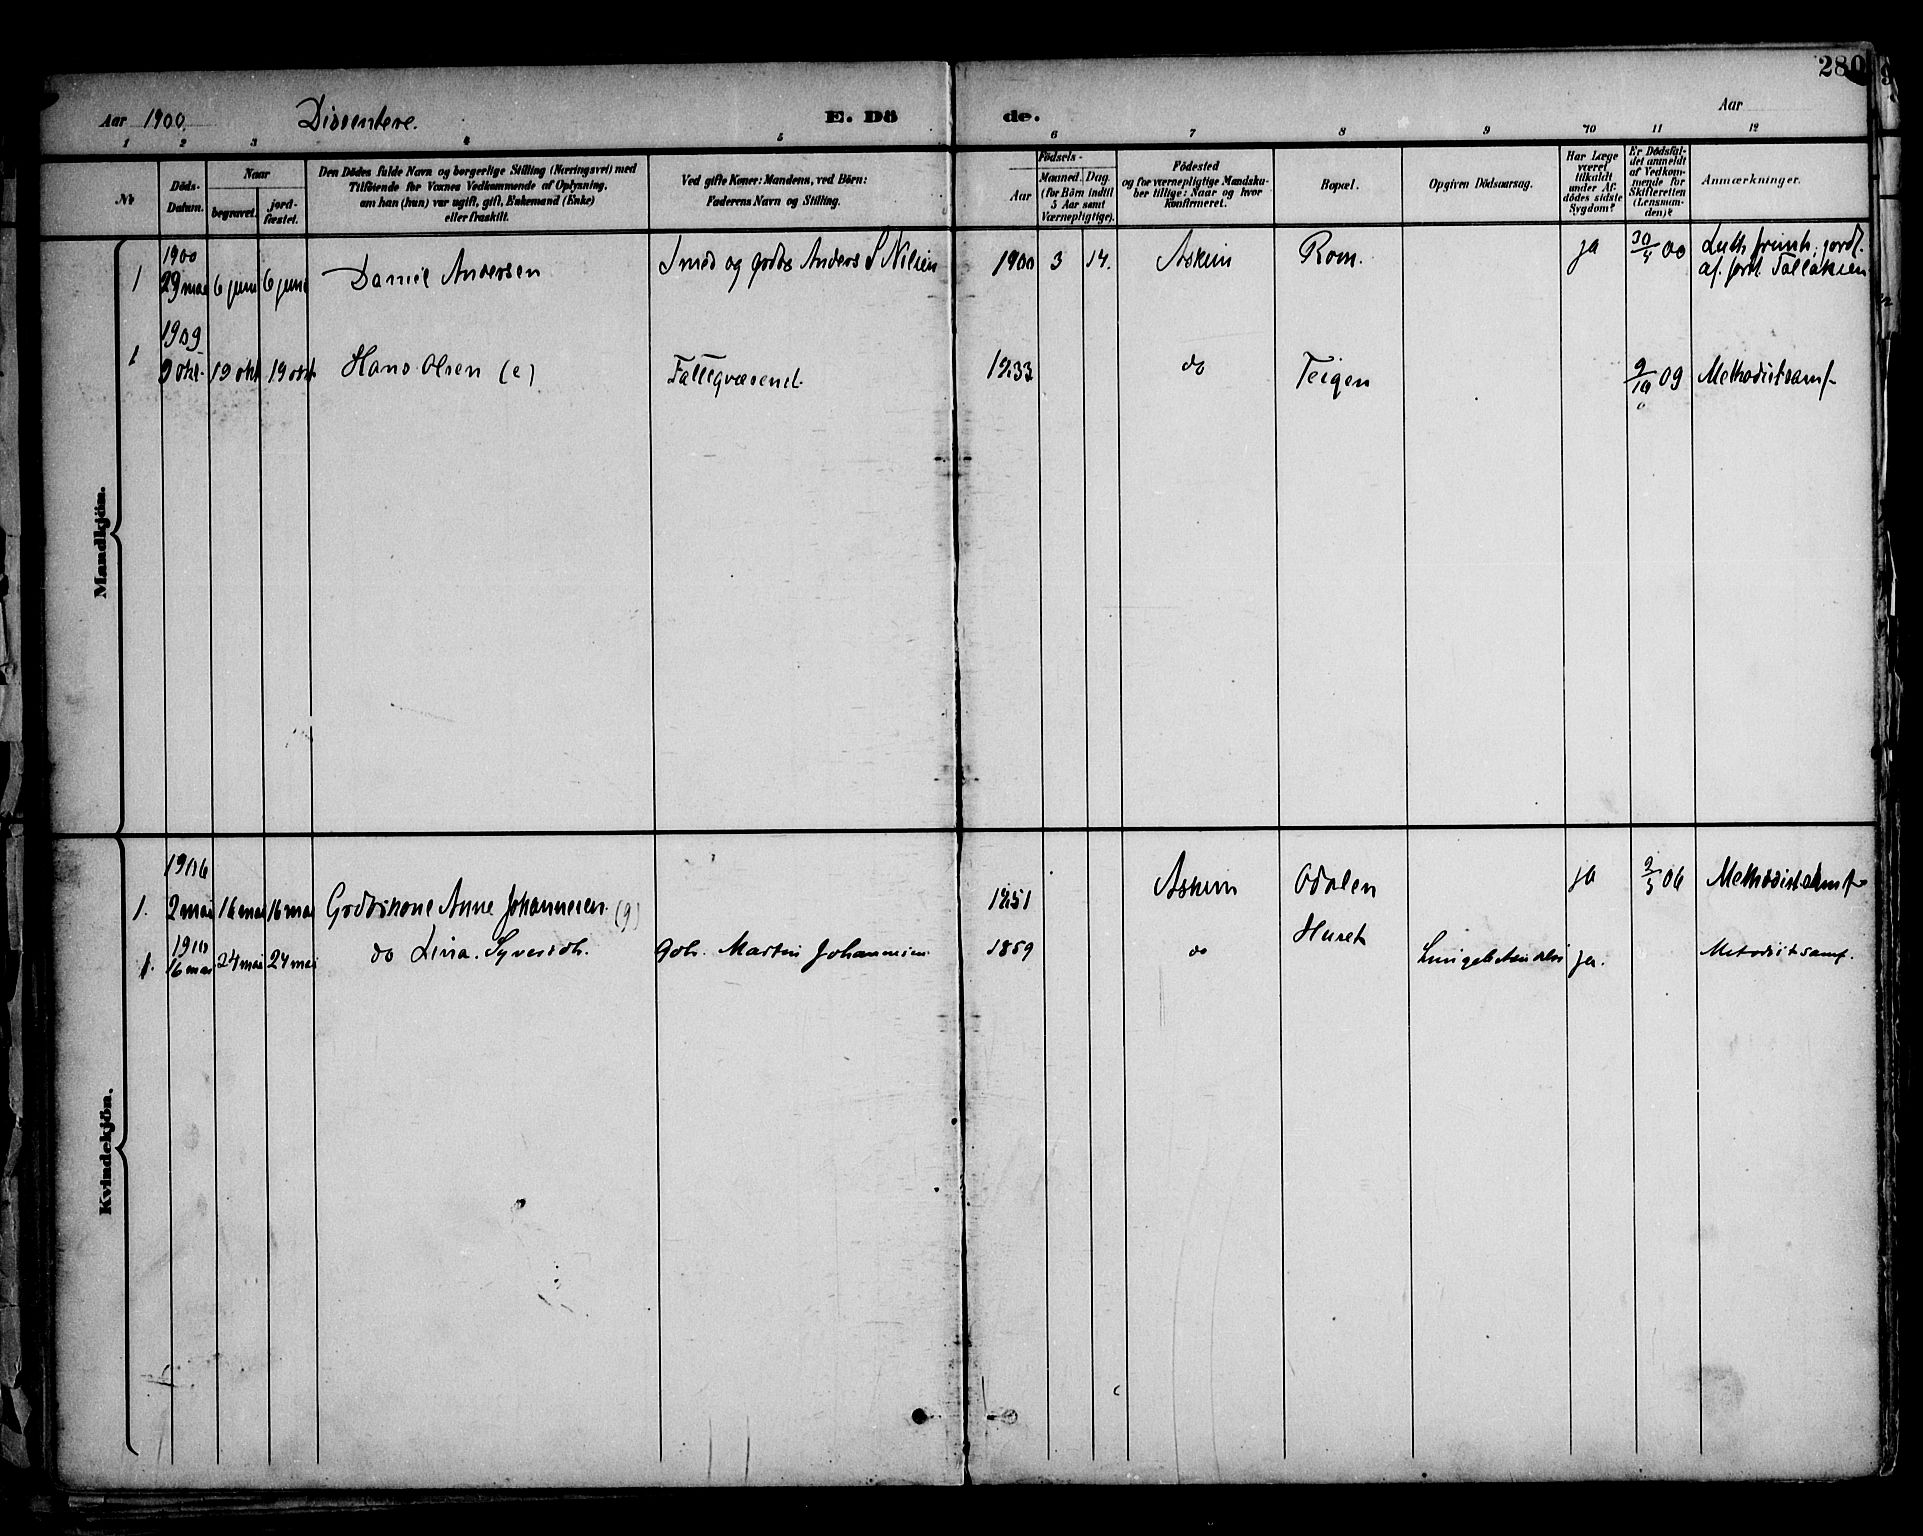 280
Aar 1900. Dissentere. E. Dö de. Aar
1 2 3 4 5 6 7 8 9 10 11 12
№
Döds-Datum.
Naar
begravet.
jord-fæstet.
Den Dödes fulde Navn og borgerlige Stilling (Næringsvei) med
Tilföiende for Voxnes Vedkommende af Oplysning,
om han (hun) var ugift, gift, Enkemand (Enke)
eller fraskilt.
Ved gifte Koner: Mandens, ved Börn:
Faderens Navn og Stilling.
Födsels-
Aar
Maaned. Dag.
(for Börn indtil
5 Aar samt
Værnepligtige).
Födested
og for værnepligtige Mandska-
ber tillige: Naar og hvor
Konfirmeret.
Bopæl.
Opgiven Dödsaarsag.
Har Læge
været
tilkaldt
under Af-
dödes sidste
Sygdom?
Er Dödsfal-
det anmeldt
af Vedkom-
mende for
Skifteretten
(Lensman-
den)?
Anmærkninger.
Mandkjön.
1 1900 29 mai 6 juni 6 juni Daniel Andersen Smed og grdbs Anders S Nilsen 1900 3 14. Askim Rom. ja 30/5 00 Luth. frimh; jordf.
af forst. Tallaksen
1 1909 9 okt. 19 okt 19 okt. Hans Olsen (e) Fattigvæsenet. 1833 do Teigen 9/10 09 Methodistsamf.
Kvindekjön.
1. 1906 2 mai 16 mai 16 mai Grdbskone Anne Johannesen (g) 1851 Askim Odalen ja 9/5 06 Methodistsamf.
1. 1910 16 mai 24 mai 24 mai do Lina Syversdtr. Gbr. Martin Johannesen 1859 do Huset ja. Metodistsamf.